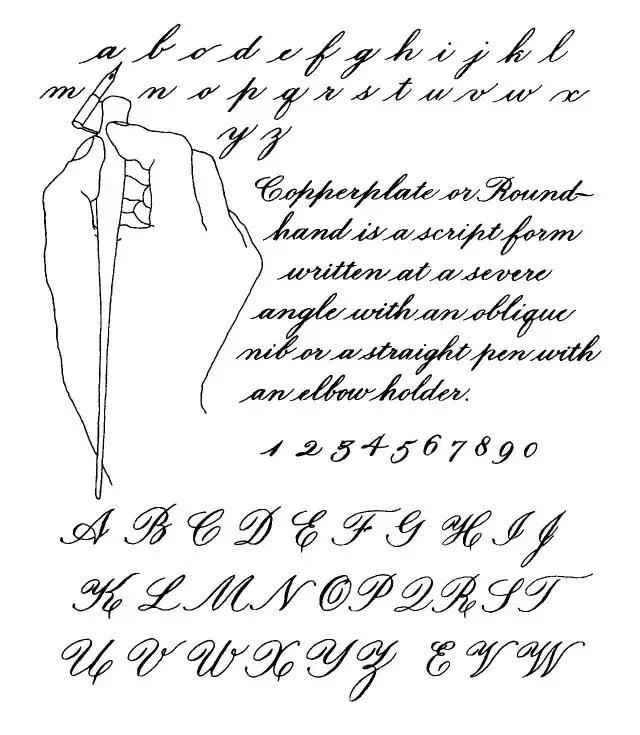 a b c d e f g h i j k l
m n o p q r s t u v w x
y z
Copperplate or Round-
hand is a script form
written at a severe
angle with an oblique
nib or a straight pen with
an elbow holder.
1 2 3 4 5 6 7 8 9 0
A B C D E F G H I J
K L M N O P Q R S T
U V W X Y Z E V W